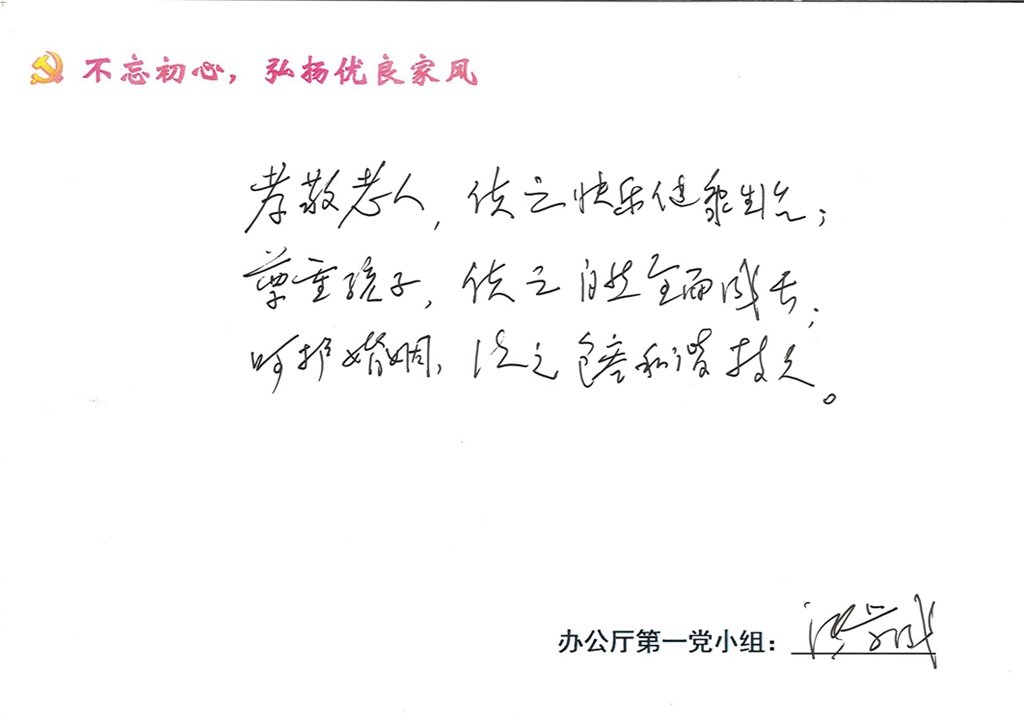 不忘初心，弘扬优良家风
孝敬老人，使之快乐健康生活；
尊重孩子，使之自然全面成长；
呵护婚姻，使之包容和谐持久。
办公厅第一党小组：